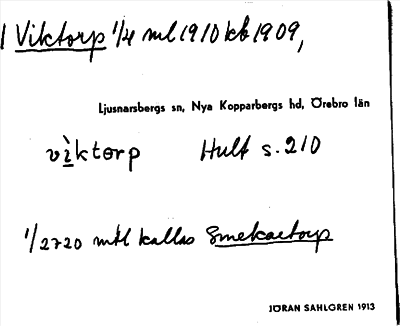 1 Viktorp 1/4 ml 1910 kb 1909,
Ljusnarsbergs sn, Nya Kopparbergs hd, Örebro län
vìktorp Hult s. 210
1/2720 mtl kallas Smekaretorp
JÖRAN SAHLGREN 1913